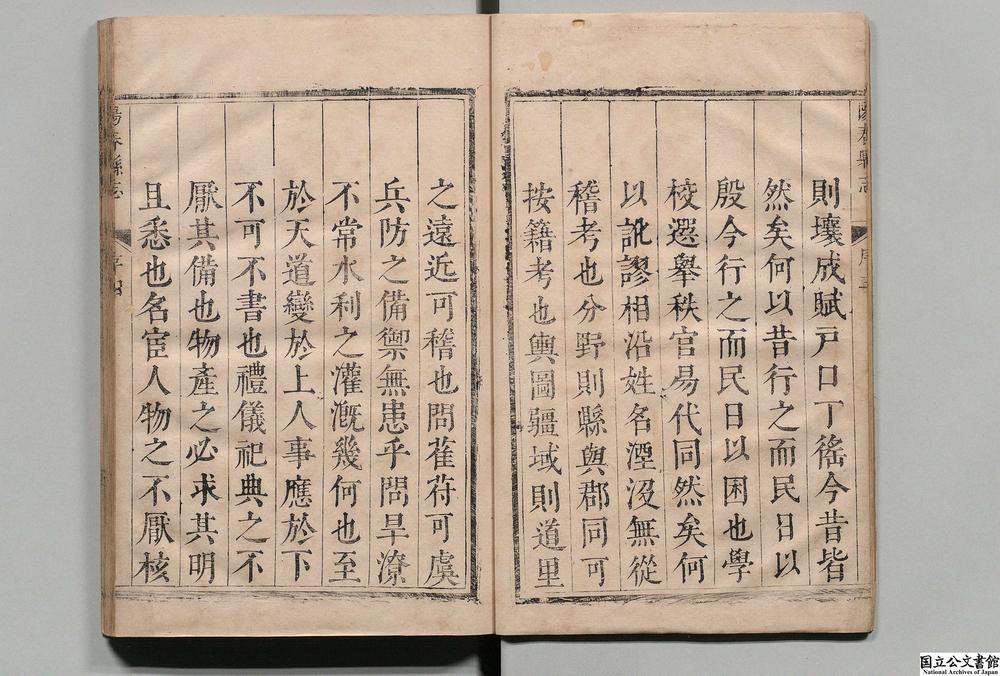 則壤成賦戸口丁徭今昔皆
然矣何以昔行之而民日以
殷今行之而民日以困也學
校選舉秩官易代同然矣何
以訛謬相沿姓名湮沒無從
稽考也分野則縣與郡同可
按籍考也輿圖疆域則道里
之遠近可稽也問萑苻可虞
兵防之備禦無患乎問旱潦
不常水利之灌漑幾何也至
於天道變於上人事應於下
不可不書也禮儀祀典之不
厭其備也物產之必求其明
且悉也名宦人物之不厭核
陽春縣志
序四
国立公文書館
National Archives of Japan